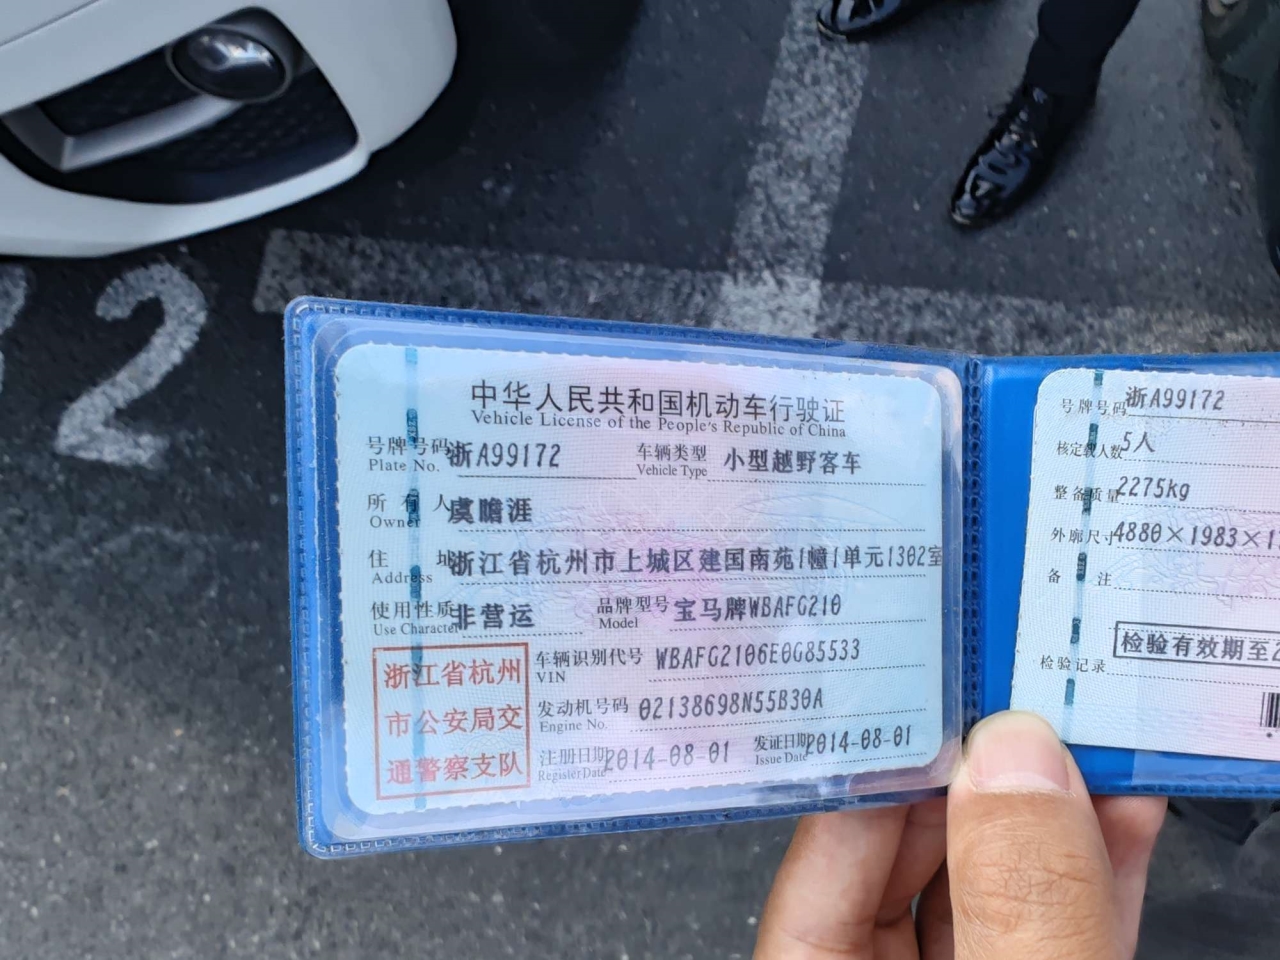 2
中华人民共和国机动车行驶证
Vehicle License of the People's Republic of China
号牌号码 浙A99172 车辆类型 小型越野客车
Plate No. Vehicle Type
所有人 虞瞻涯
Owner
住址 浙江省杭州市上城区建国南苑1幢1单元1302室
Address
使用性质 非营运 品牌型号 宝马牌WBAFG210
Use Character Model
浙江省杭州
市公安局交
通警察支队
车辆识别代号 WBAFG2106E0G85533
VIN
发动机号码 02138698N55B30A
Engine No.
注册日期 2014-08-01 发证日期 2014-08-01
Register Date Issue Date
号牌号码 浙A99172
核定载人数 5人
整备质量 2275kg
外廓尺寸 4880×1983×1
备注
检验有效期至2
检验记录